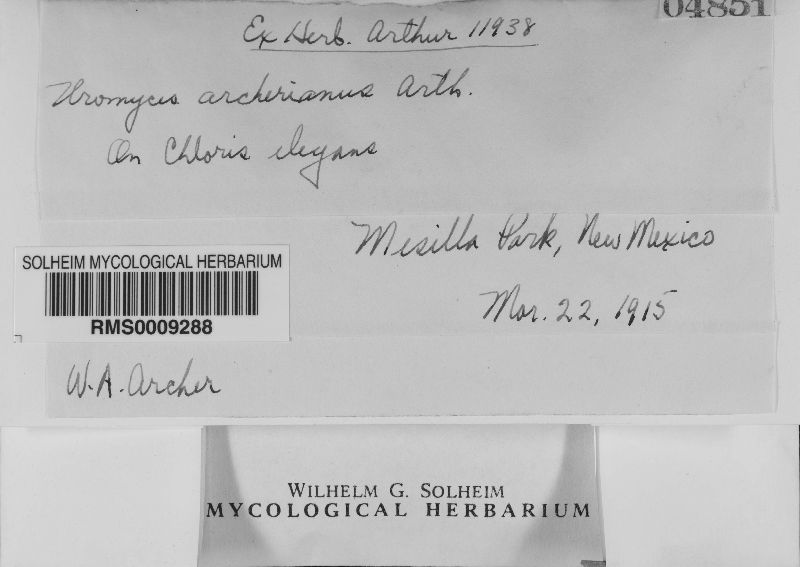 04851
Ex Herb. Arthur 11938
Uromyces archerianus Arth.
On Chloris elegans
Mesilla Park, New Mexico
SOLHEIM MYCOLOGICAL HERBARIUM
RMS0009288
Mar. 22, 1915
W. A. Archer
WILHELM G. SOLHEIM
MYCOLOGICAL HERBARIUM